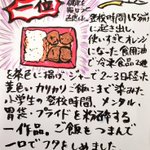 二位
登校時間15分前
に起き出し、
使いすぎてオレンジ
になった食用油
で冷凍食品2種
を茶色に揚げ、ジャーで2〜3日経った
黄色いカリカリご飯
小学生の登校時間、メンタル、
胃袋、プライドを粉砕する
一作品。ご飯をつまんで
一口でフタをしめました